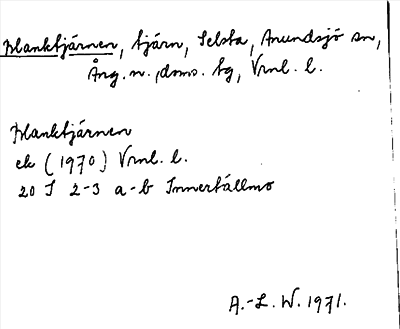 Blanktjärnen, tjärn, Selsta, Anundsjö sn,
Ång. n., doms. tg, Vrnl. l.
Blanktjärnen
ek (1970) Vrnl. l.
20 I 2-3 a-b Innertällmo
A.-L. W. 1971.